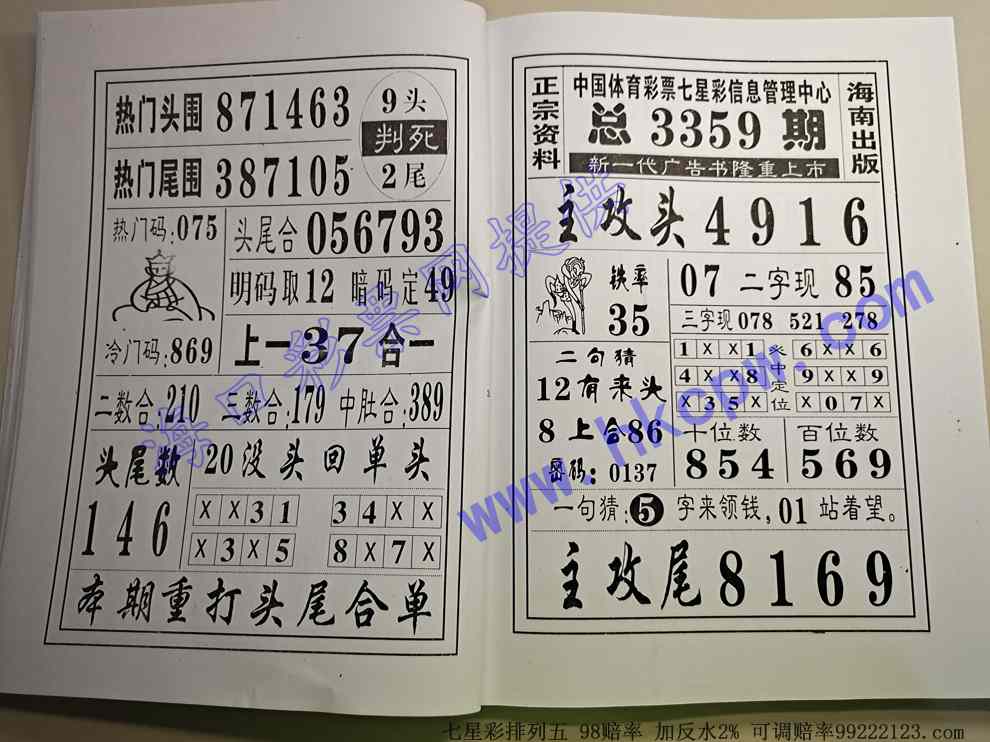 热门头围 871463
9头
判死
2尾
热门尾围 387105
热门码:075
头尾合 056793
明码取12 暗码定49
冷门码:869
上一37合一
二数合:210 三数合:179 中肚合:389
头尾数
146
20没头回单头
XX31 34XX
X3X5 8X7X
本期重打头尾合单
正宗资料
中国体育彩票七星彩信息管理中心
总 3359 期
新一代广告书隆重上市
海南出版
主攻头 4916
铁率
35
07 二字现 85
三字现 078 521 278
二句猜
12有来头
8上合86
密码: 0137
1XX1 6XX6
4XX8 9XX9
X35X X07X
奖中定位
十位数
854
百位数
569
一句猜:5字来领钱,01站着望。
主攻尾 8169
海口彩票网提供
www.hkcpw.com
七星彩排列五 98赔率 加反水2% 可调赔率99222123.com